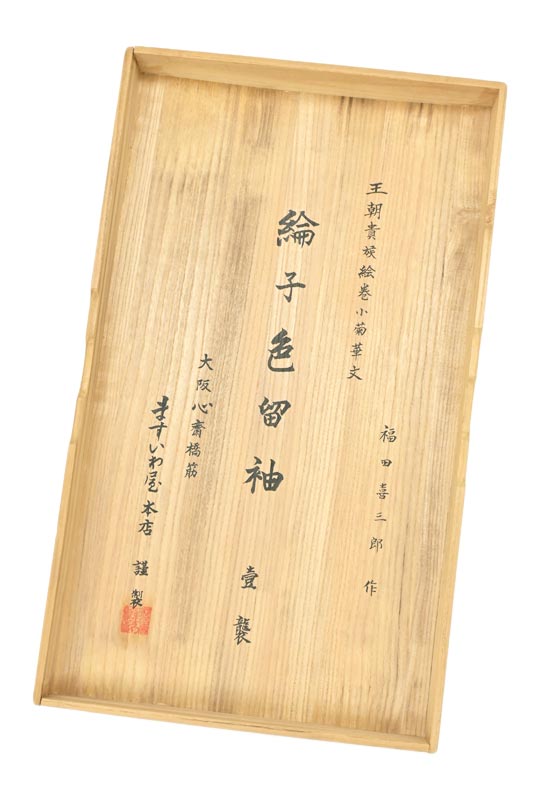 王朝貴族絵巻小菊華文
福田喜三郎 作
綸子色留袖 壹襲
大阪心斎橋筋
ますいわ屋本店 謹製